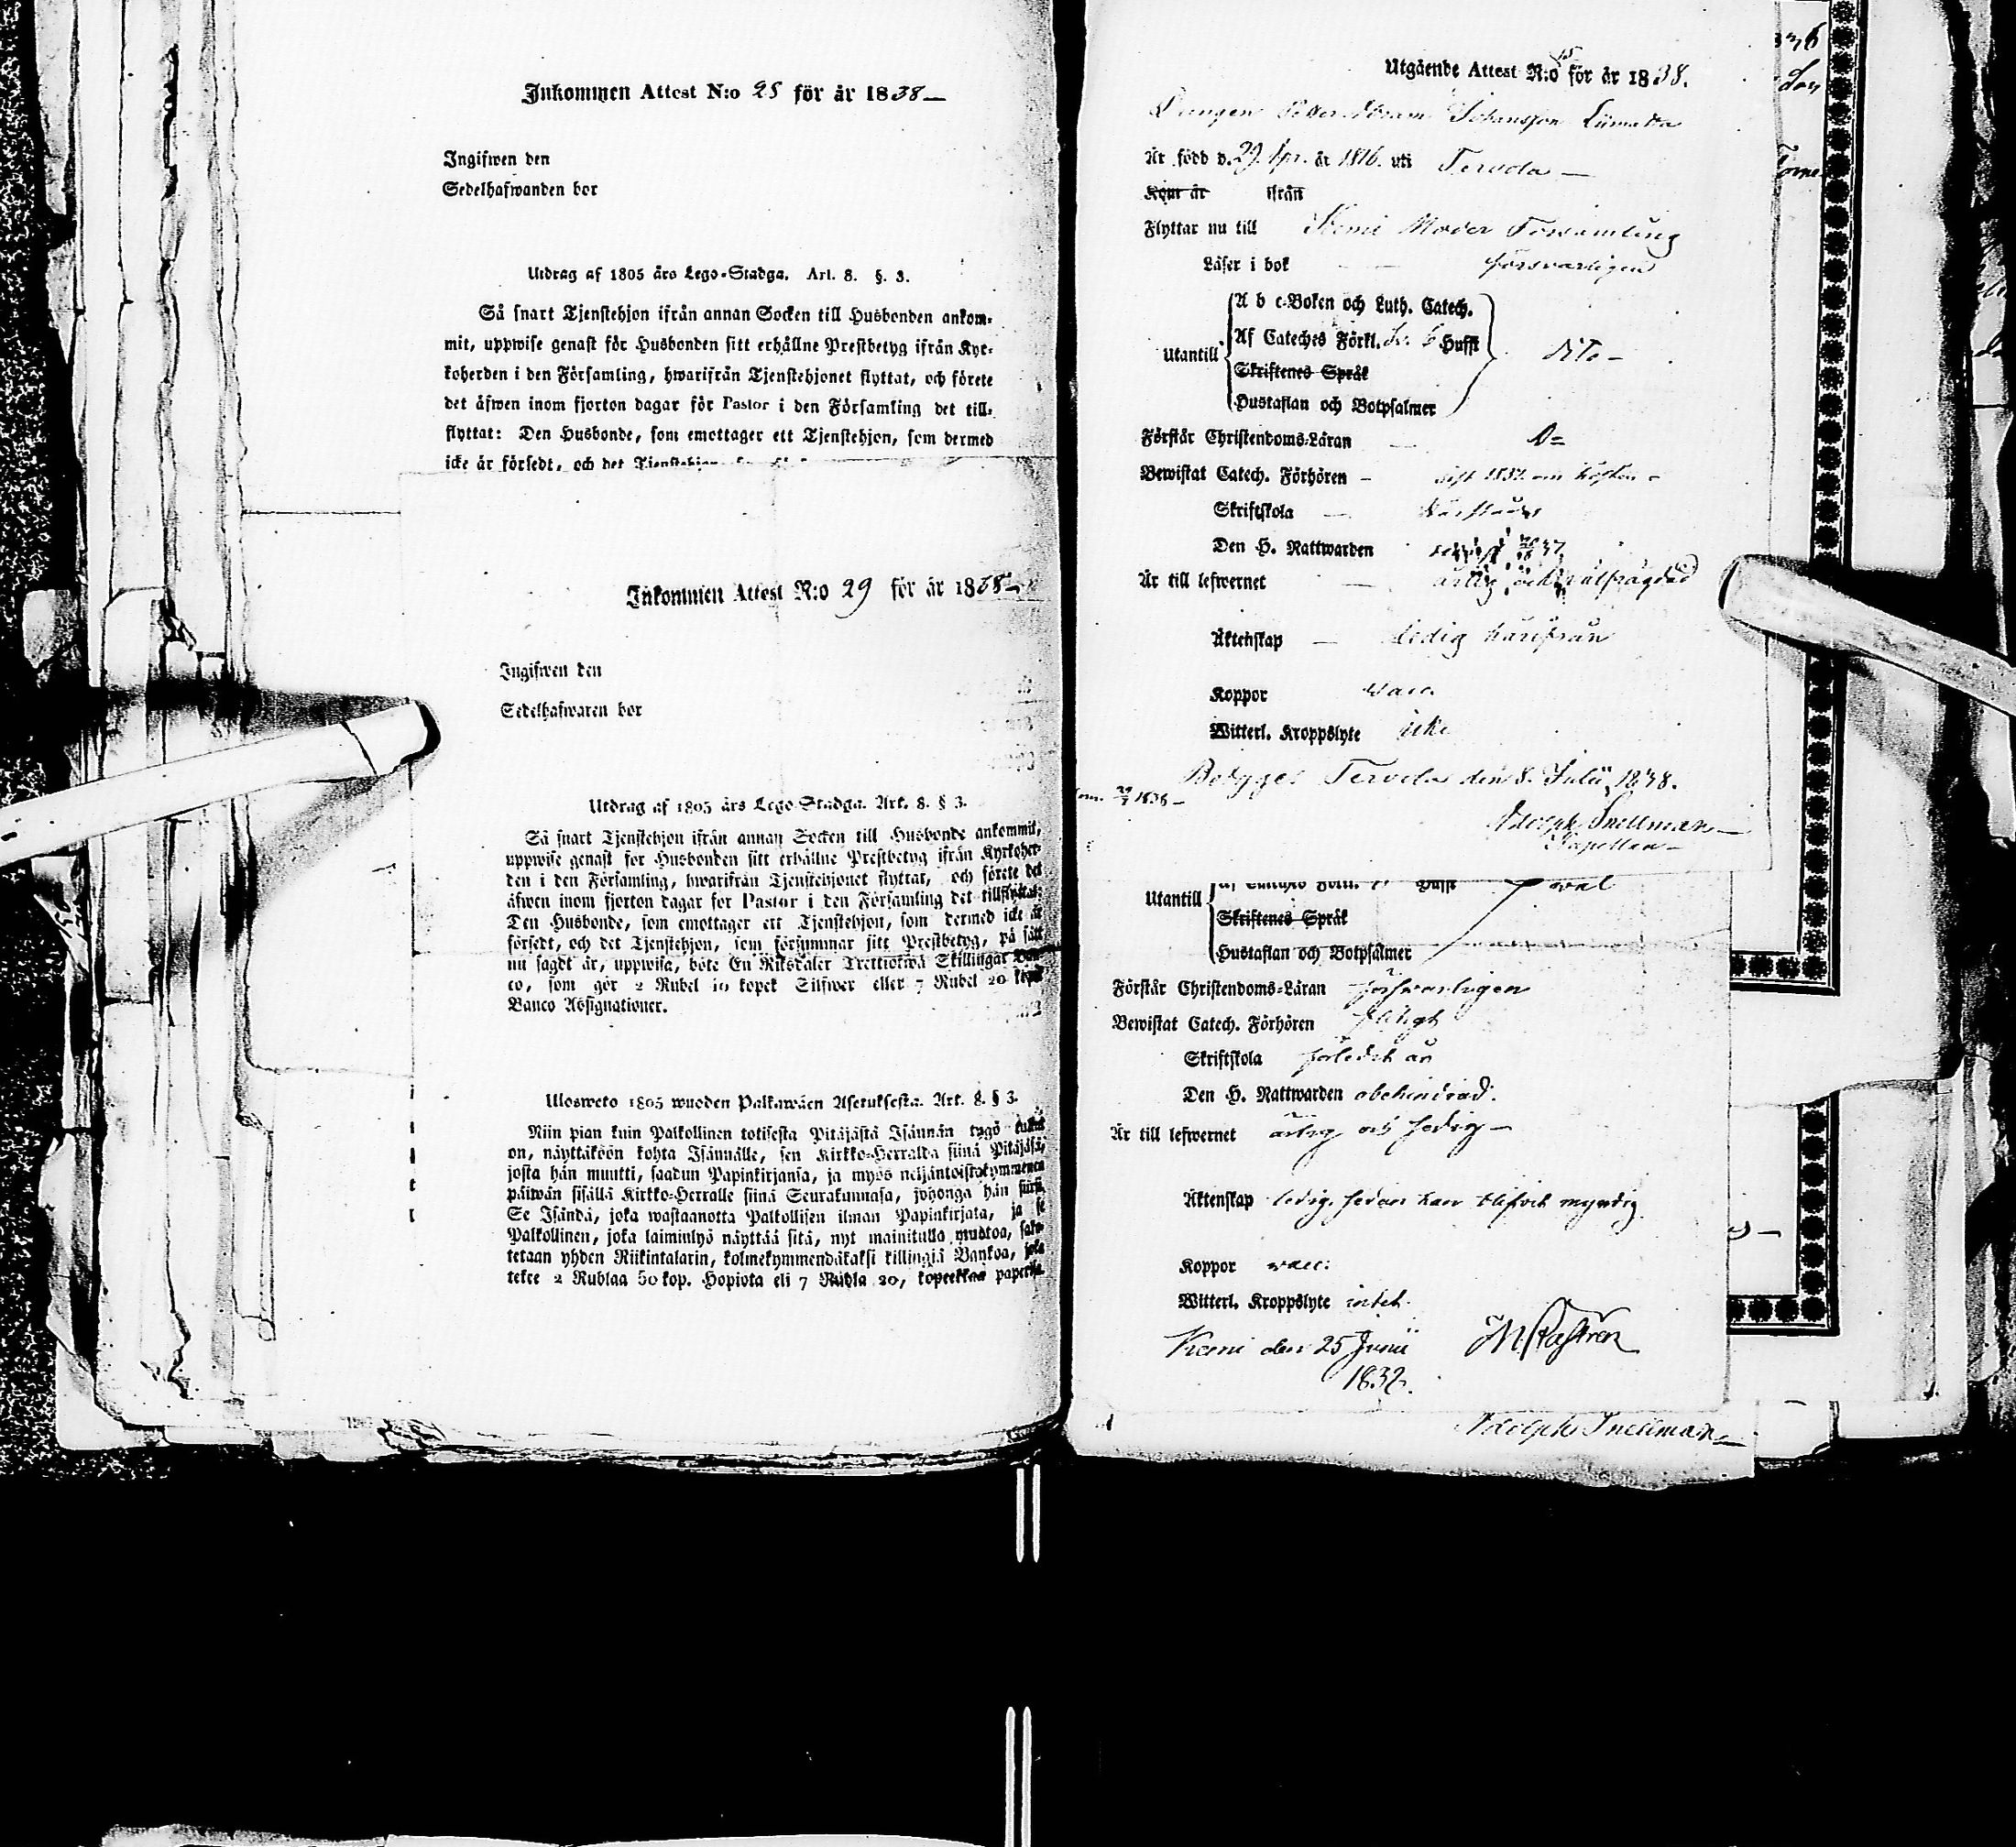 Inkommen Attest N:o 25 för år 1838
Ingifwen den
Sedelhafwanden bor
Utdrag af 1805 års Lego-Stadga. Art. 8. §. 3.
Så snart Tjenstehjon ifrån annan Socken till Husbonden ankom-
mit, uppwise genast för Husbonden sitt erhållne Prestbetyg ifrån Kyr-
koherden i den Församling, hwarifrån Tjenstehjonet flyttat, och förete
det äfwen inom fjorton dagar för Pastor i den Församling det till-
flyttat: Den Husbonde, som emottager ett Tjenstehjon, som dermed
icke är försedt, och det
Inkommen Attest N:o 29 för år 1838
Ingifwen den
Sedelhafwaren bor
Utdrag af 1805 års Lego-Stadga. Art. 8. § 3.
Så snart Tjenstehjon ifrån annan Socken till Husbonde ankommit,
uppwise genast för Husbonden sitt erhållne Prestbetyg ifrån Kyrkoher-
den i den Församling, hwarifrån Tjenstehjonet flyttat, och förete det
äfwen inom fjorton dagar för Pastor i den Församling det tillflyttat:
Den Husbonde, som emottager ett Tjenstehjon, som dermed icke är
försedt, och det Tjenstehjon, som försummar sitt Prestbetyg, på sätt
nu sagdt är, uppwisa, böte En Riksdaler Trettiotwå Skillingar Ban-
co, som gör 2 Rubel 10 kopek Silfwer eller 7 Rubel 20 kopek
Banco Assignationer.
Ulosweto 1805 wuoden Palkawäen Asetuksesta. Art. 8. § 3.
Niin pian kuin Palkollinen toisesta Pitäjästä Isännän tygö tullut
on, näyttäköön kohta Isännälle, sen Kirkko-Herralda siinä Pitäjäsä,
josta hän muutti, saadun Papinkirjansa, ja myös neljäntoistakymmenen
päiwän sisällä Kirkko-Herralle siinä Seurakunnasa, johonga hän siirsi.
Se Isändä, joka wastaanotta Palkollisen ilman Papinkirjata, ja se
Palkollinen, joka laiminlyö näyttää sitä, nyt mainitulla muotoa, sako-
tetaan yhden Riikintalarin, kolmekymmendäkaksi killingiä Bankoa, joka
tekee 2 Rublaa 50 kop. Hopiota eli 7 Rubla 20, kopeekkaa paperisa.
Utgående Attest N:o 15 för år 1838.
Drängen Petter Abram Johansson Liimatta
Är född d. 29 Apr. år 1816. uti Tervola
Kom år ifrån
Flyttar nu till Kemi Moder Församling
Läser i bok försvarligen
A b c-Boken och Luth. Catech.
Af Cateches Förkl. Hufst
Utantill dito
Skriftenes Språk
Hustaflan och Botpsalmer
Förstår Christendoms-Läran D=
Bewistat Catech. Förhören sist 1837 om hösten
Skriftskola
Den H. Nattwarden
Är till lefwernet ärlig och wälfrägdad
Äktenskap ledig härifrån
Koppor vacc.
Witterl. Kroppslyte icke
Betygar Tervola den 8. Julii 1838.
Adolph Snellman
Capellan
Utantill
wäl
Skriftenes Språk
Hustaflan och Botpsalmer
Förstår Christendoms-Läran förswarligen
Bewistat Catech. Förhören flitigt
Skriftskola förledit år
Den H. Nattwarden obehindrad.
Är till lefwernet ärlig och sedig
Äktenskap ledig, sedan han blifwit myndig
Koppor vacc:
Witterl. Kroppslyte intet.
Kemi den 25 Junii
1832.
Adolph Snellman